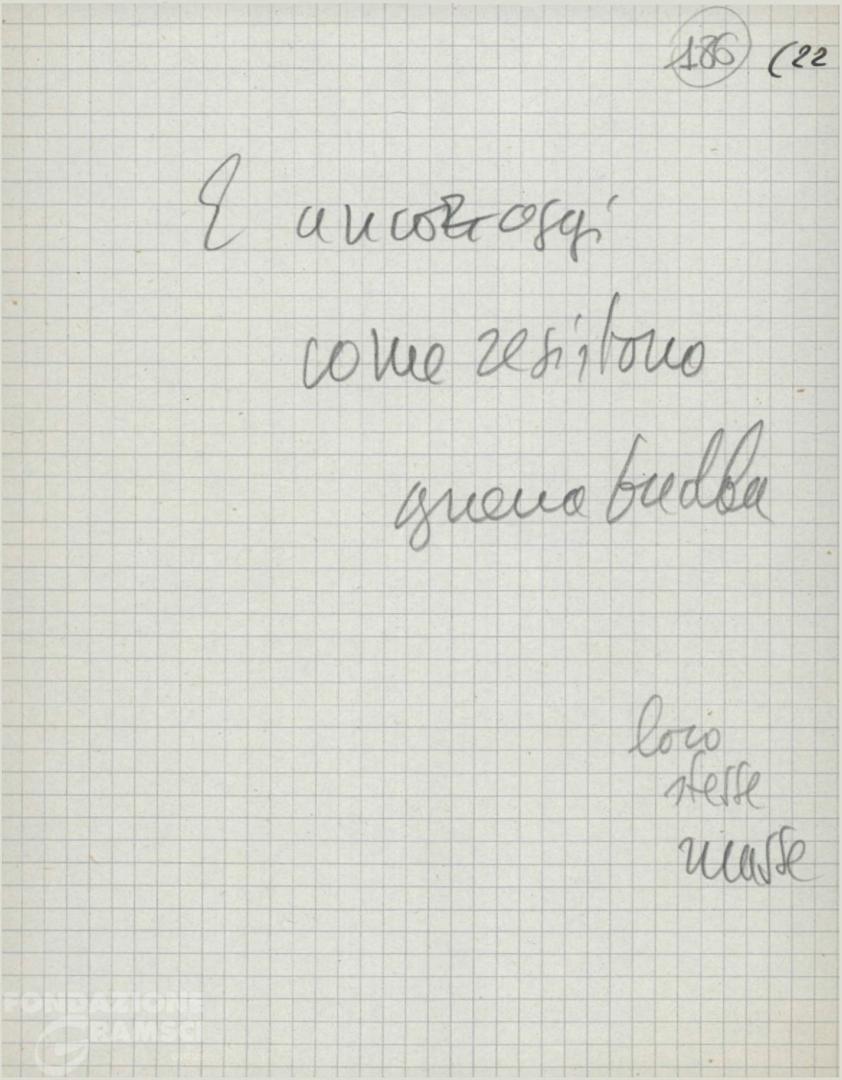 186 (22
E ancora oggi
come resistono
guerra fredda
loro
stesse
masse
FONDAZIONE
GRAMSCI